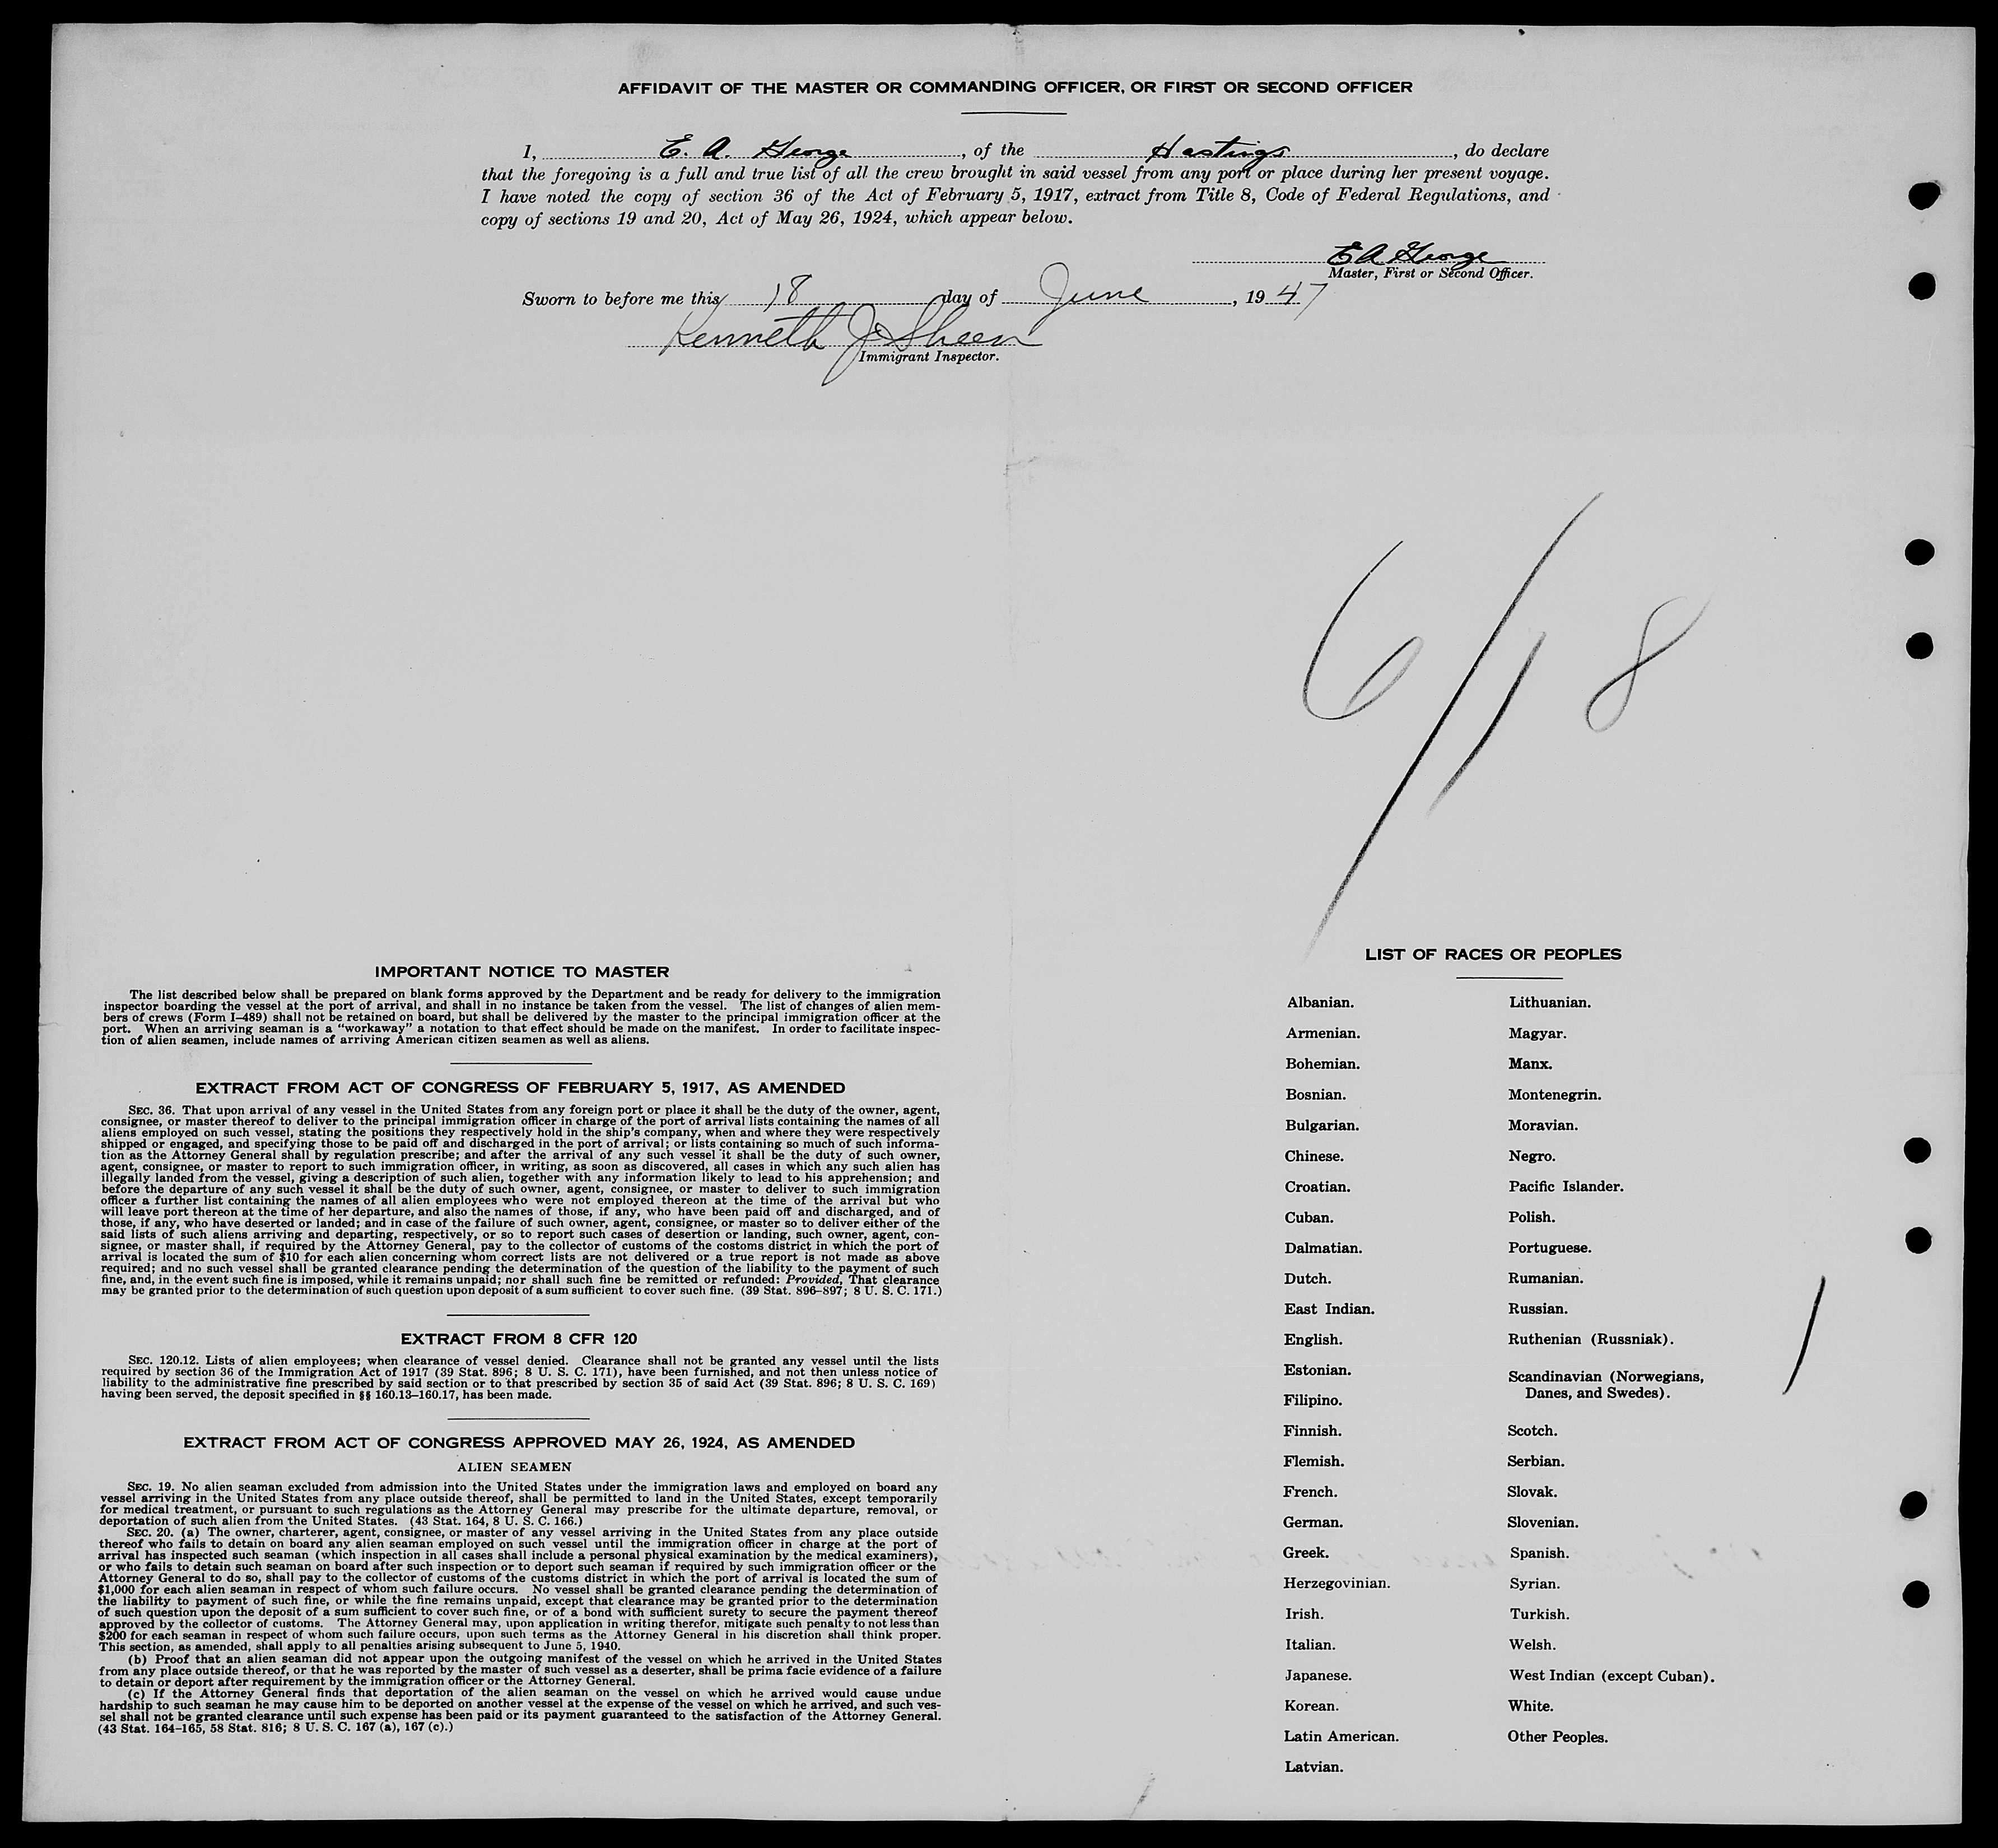 AFFIDAVIT OF THE MASTER OR COMMANDING OFFICER, OR FIRST OR SECOND OFFICER
I, E. A. George, of the Hastings, do declare
that the foregoing is a full and true list of all the crew brought in said vessel from any port or place during her present voyage.
I have noted the copy of section 36 of the Act of February 5, 1917, extract from Title 8, Code of Federal Regulations, and
copy of sections 19 and 20, Act of May 26, 1924, which appear below.
E A George
Master, First or Second Officer.
Sworn to before me this 18 day of June, 1947
Kenneth J Sheen
Immigrant Inspector.
6/18
IMPORTANT NOTICE TO MASTER
The list described below shall be prepared on blank forms approved by the Department and be ready for delivery to the immigration
inspector boarding the vessel at the port of arrival, and shall in no instance be taken from the vessel. The list of changes of alien mem-
bers of crews (Form I-489) shall not be retained on board, but shall be delivered by the master to the principal immigration officer at the
port. When an arriving seaman is a "workaway" a notation to that effect should be made on the manifest. In order to facilitate inspec-
tion of alien seamen, include names of arriving American citizen seamen as well as aliens.
EXTRACT FROM ACT OF CONGRESS OF FEBRUARY 5, 1917, AS AMENDED
SEC. 36. That upon arrival of any vessel in the United States from any foreign port or place it shall be the duty of the owner, agent,
consignee, or master thereof to deliver to the principal immigration officer in charge of the port of arrival lists containing the names of all
aliens employed on such vessel, stating the positions they respectively hold in the ship's company, when and where they were respectively
shipped or engaged, and specifying those to be paid off and discharged in the port of arrival; or lists containing so much of such informa-
tion as the Attorney General shall by regulation prescribe; and after the arrival of any such vessel it shall be the duty of such owner,
agent, consignee, or master to report to such immigration officer, in writing, as soon as discovered, all cases in which any such alien has
illegally landed from the vessel, giving a description of such alien, together with any information likely to lead to his apprehension; and
before the departure of any such vessel it shall be the duty of such owner, agent, consignee, or master to deliver to such immigration
officer a further list containing the names of all alien employees who were not employed thereon at the time of the arrival but who
will leave port thereon at the time of her departure, and also the names of those, if any, who have been paid off and discharged, and of
those, if any, who have deserted or landed; and in case of the failure of such owner, agent, consignee, or master so to deliver either of the
said lists of such aliens arriving and departing, respectively, or so to report such cases of desertion or landing, such owner, agent, con-
signee, or master shall, if required by the Attorney General, pay to the collector of customs of the costoms district in which the port of
arrival is located the sum of $10 for each alien concerning whom correct lists are not delivered or a true report is not made as above
required; and no such vessel shall be granted clearance pending the determination of the question of the liability to the payment of such
fine, and, in the event such fine is imposed, while it remains unpaid; nor shall such fine be remitted or refunded: Provided, That clearance
may be granted prior to the determination of such question upon deposit of a sum sufficient to cover such fine. (39 Stat. 896-897; 8 U. S. C. 171.)
EXTRACT FROM 8 CFR 120
SEC. 120.12. Lists of alien employees; when clearance of vessel denied. Clearance shall not be granted any vessel until the lists
required by section 36 of the Immigration Act of 1917 (39 Stat. 896; 8 U. S. C. 171), have been furnished, and not then unless notice of
liability to the administrative fine prescribed by said section or to that prescribed by section 35 of said Act (39 Stat. 896; 8 U. S. C. 169)
having been served, the deposit specified in §§ 160.13-160.17, has been made.
EXTRACT FROM ACT OF CONGRESS APPROVED MAY 26, 1924, AS AMENDED
ALIEN SEAMEN
SEC. 19. No alien seaman excluded from admission into the United States under the immigration laws and employed on board any
vessel arriving in the United States from any place outside thereof, shall be permitted to land in the United States, except temporarily
for medical treatment, or pursuant to such regulations as the Attorney General may prescribe for the ultimate departure, removal, or
deportation of such alien from the United States. (43 Stat. 164, 8 U. S. C. 166.)
SEC. 20. (a) The owner, charterer, agent, consignee, or master of any vessel arriving in the United States from any place outside
thereof who fails to detain on board any alien seaman employed on such vessel until the immigration officer in charge at the port of
arrival has inspected such seaman (which inspection in all cases shall include a personal physical examination by the medical examiners),
or who fails to detain such seaman on board after such inspection or to deport such seaman if required by such immigration officer or the
Attorney General to do so, shall pay to the collector of customs of the customs district in which the port of arrival is located the sum of
$1,000 for each alien seaman in respect of whom such failure occurs. No vessel shall be granted clearance pending the determination of
the liability to payment of such fine, or while the fine remains unpaid, except that clearance may be granted prior to the determination
of such question upon the deposit of a sum sufficient to cover such fine, or of a bond with sufficient surety to secure the payment thereof
approved by the collector of customs. The Attorney General may, upon application in writing therefor, mitigate such penalty to not less than
$200 for each seaman in respect of whom such failure occurs, upon such terms as the Attorney General in his discretion shall think proper.
This section, as amended, shall apply to all penalties arising subsequent to June 5, 1940.
(b) Proof that an alien seaman did not appear upon the outgoing manifest of the vessel on which he arrived in the United States
from any place outside thereof, or that he was reported by the master of such vessel as a deserter, shall be prima facie evidence of a failure
to detain or deport after requirement by the immigration officer or the Attorney General.
(c) If the Attorney General finds that deportation of the alien seaman on the vessel on which he arrived would cause undue
hardship to such seaman he may cause him to be deported on another vessel at the expense of the vessel on which he arrived, and such ves-
sel shall not be granted clearance until such expense has been paid or its payment guaranteed to the satisfaction of the Attorney General.
(43 Stat. 164-165, 58 Stat. 816; 8 U. S. C. 167 (a), 167 (c).)
LIST OF RACES OR PEOPLES
Albanian.
Armenian.
Bohemian.
Bosnian.
Bulgarian.
Chinese.
Croatian.
Cuban.
Dalmatian.
Dutch.
East Indian.
English.
Estonian.
Filipino.
Finnish.
Flemish.
French.
German.
Greek.
Herzegovinian.
Irish.
Italian.
Japanese.
Korean.
Latin American.
Latvian.
Lithuanian.
Magyar.
Manx.
Montenegrin.
Moravian.
Negro.
Pacific Islander.
Polish.
Portuguese.
Rumanian.
Russian.
Ruthenian (Russniak).
Scandinavian (Norwegians,
Danes, and Swedes).
Scotch.
Serbian.
Slovak.
Slovenian.
Spanish.
Syrian.
Turkish.
Welsh.
West Indian (except Cuban).
White.
Other Peoples.